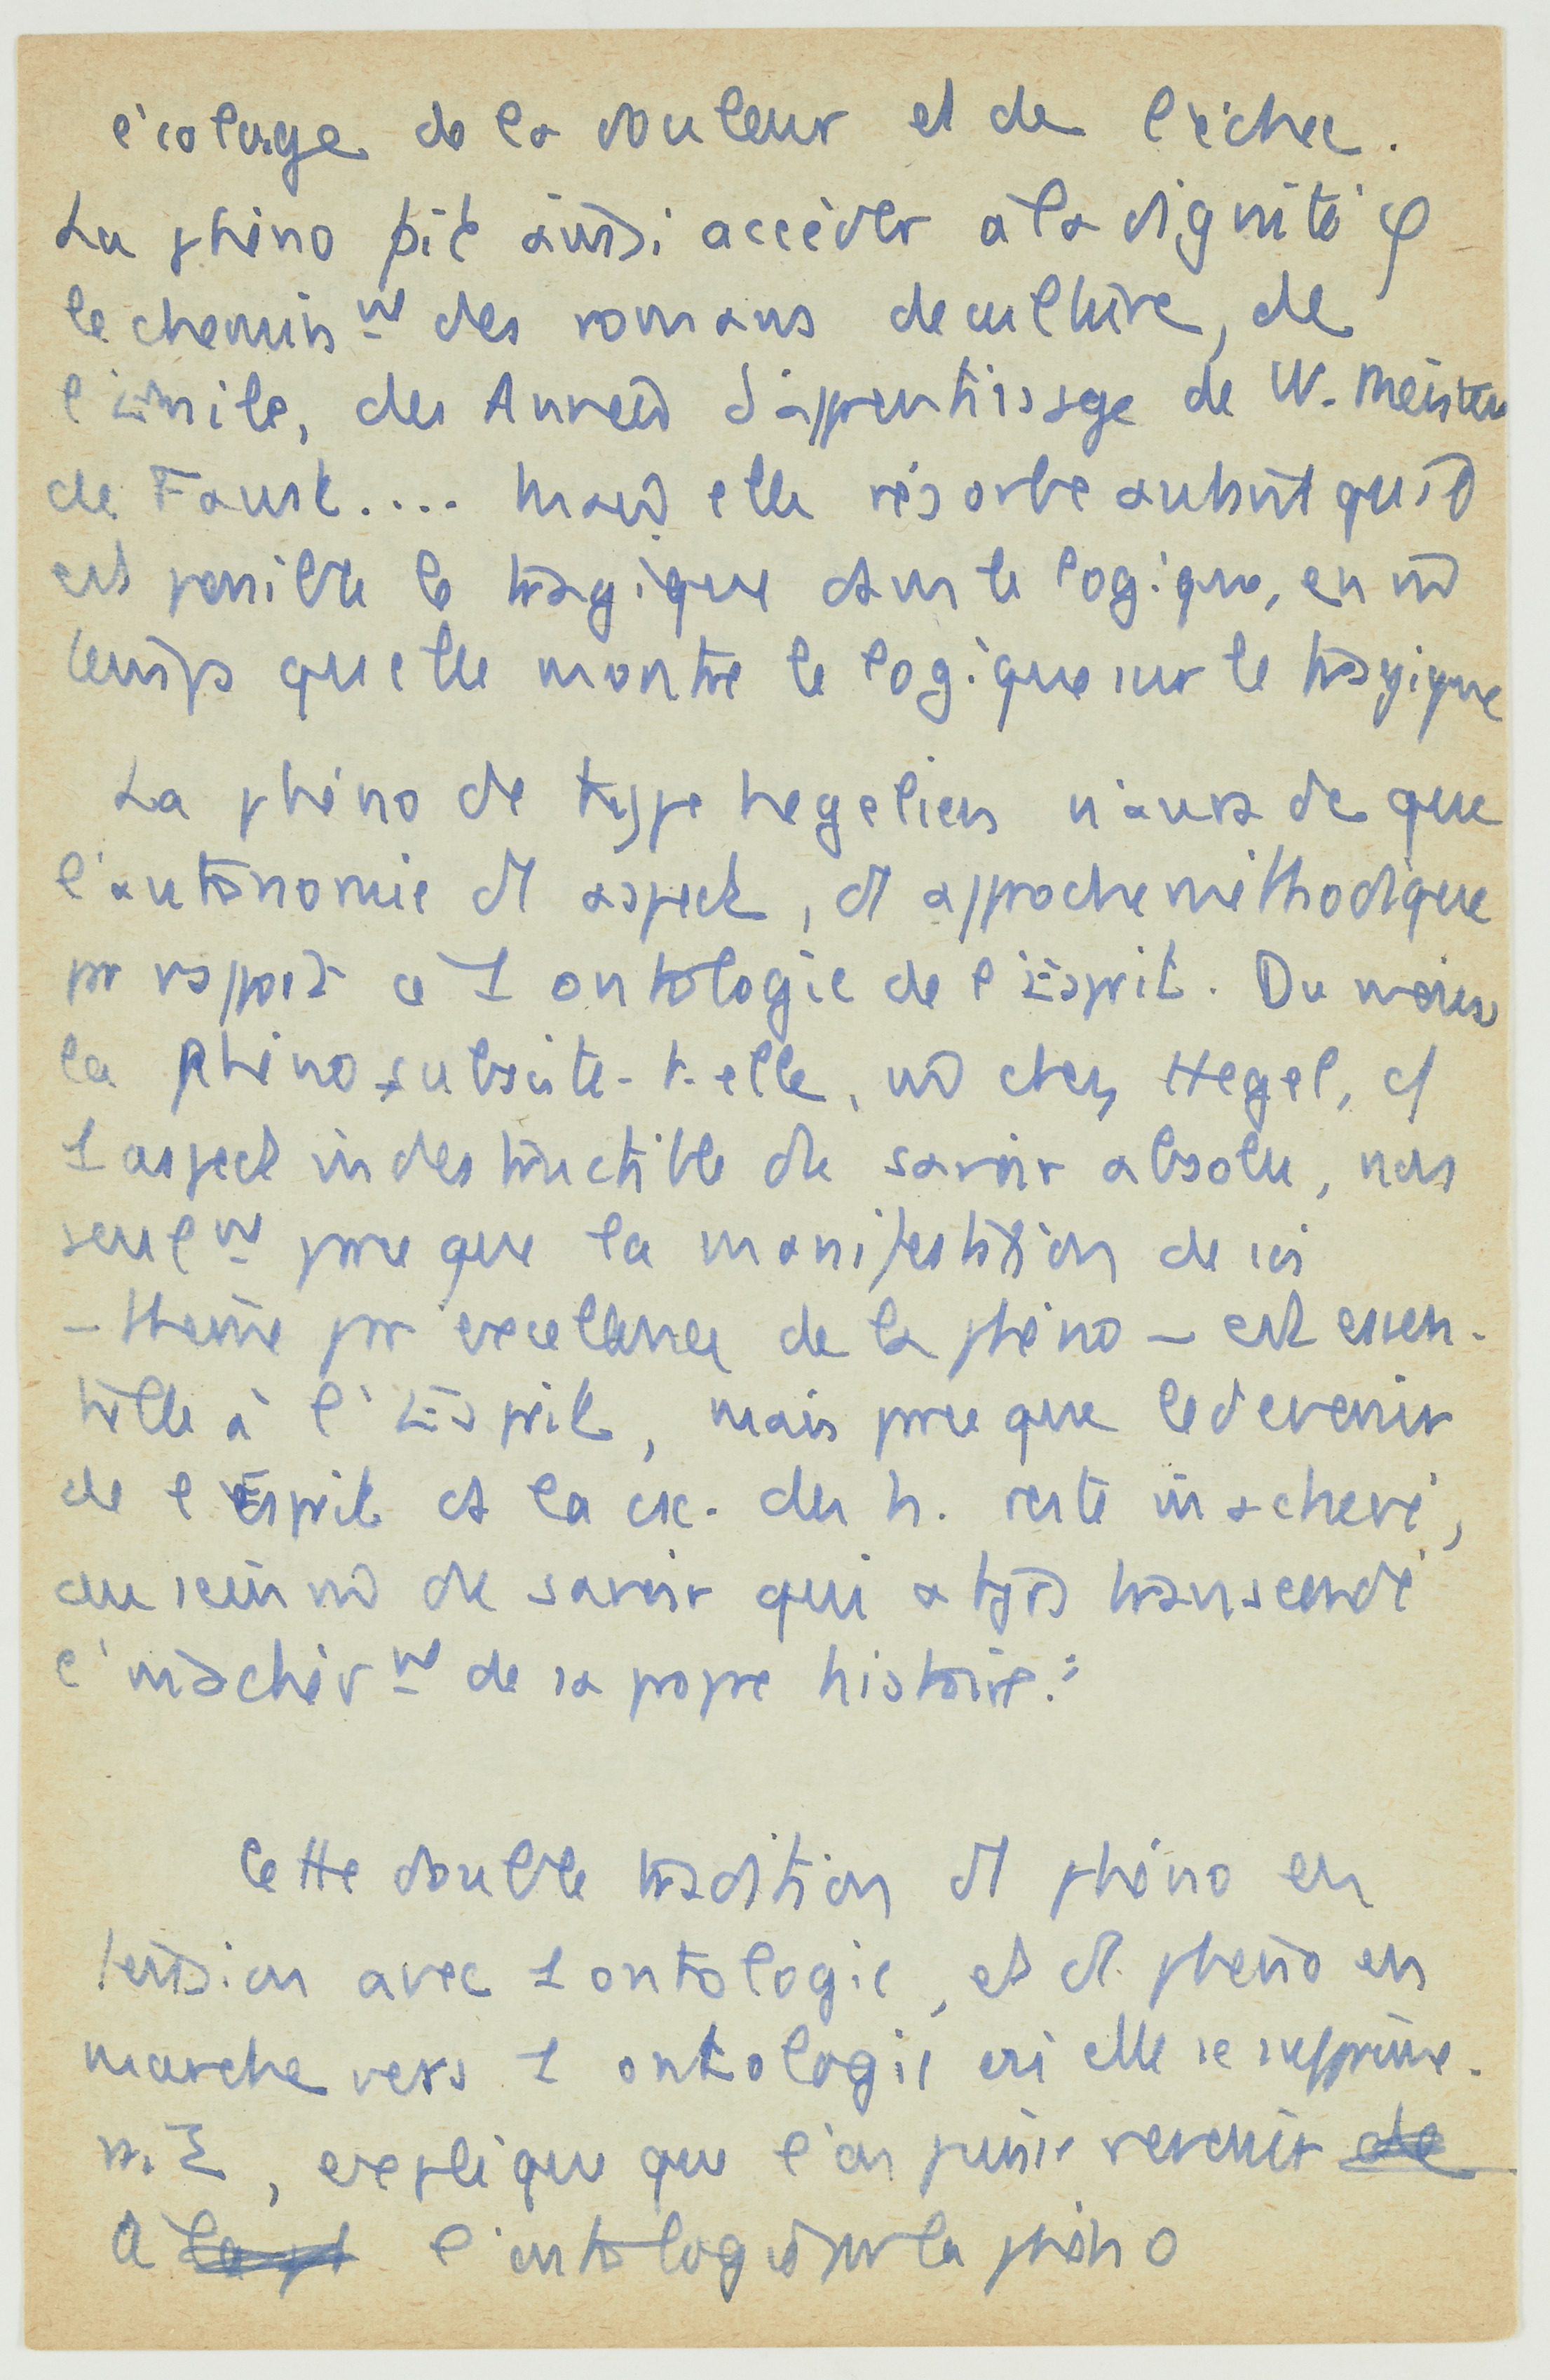 écolage de la douleur et de l'échec.
La phéno fit ainsi accéder à la dignité φ
le chemin^mt des romans de culture, de
l'Émile, des Années d'apprentissage de W. Meister
de Faust.... Mais elle résorbe autant qu'il
est possible le tragique dans le logique, en m̂
temps qu'elle montre le logique sur le tragique
La phéno de type hegelien n'aura de que
l'autonomie d'1 aspect, d'1 approche méthodique
par rapport à 1 ontologie de l'Esprit. Du moins
la phéno subsiste-t-elle, m̂ chez Hegel, c/
1 aspect indestructible du savoir absolu, non
seul^mt parce que la manifestation de soi
– thème par excellence de la phéno – est essen-
tielle à l'Esprit, mais parce que le devenir
de l'Esprit ds la csc. des h. reste inachevé,
au sein m̂ du savoir qui a tjrs transcendé
l'inachèv^mt de sa propre histoire.
Cette double tradition d'1 phéno en
tension avec 1 ontologie, et d'1 phéno en
marche vers 1 ontologie où elle se supprime
explique que l'on puisse revenir de
à la ph l'ontologie par la phéno